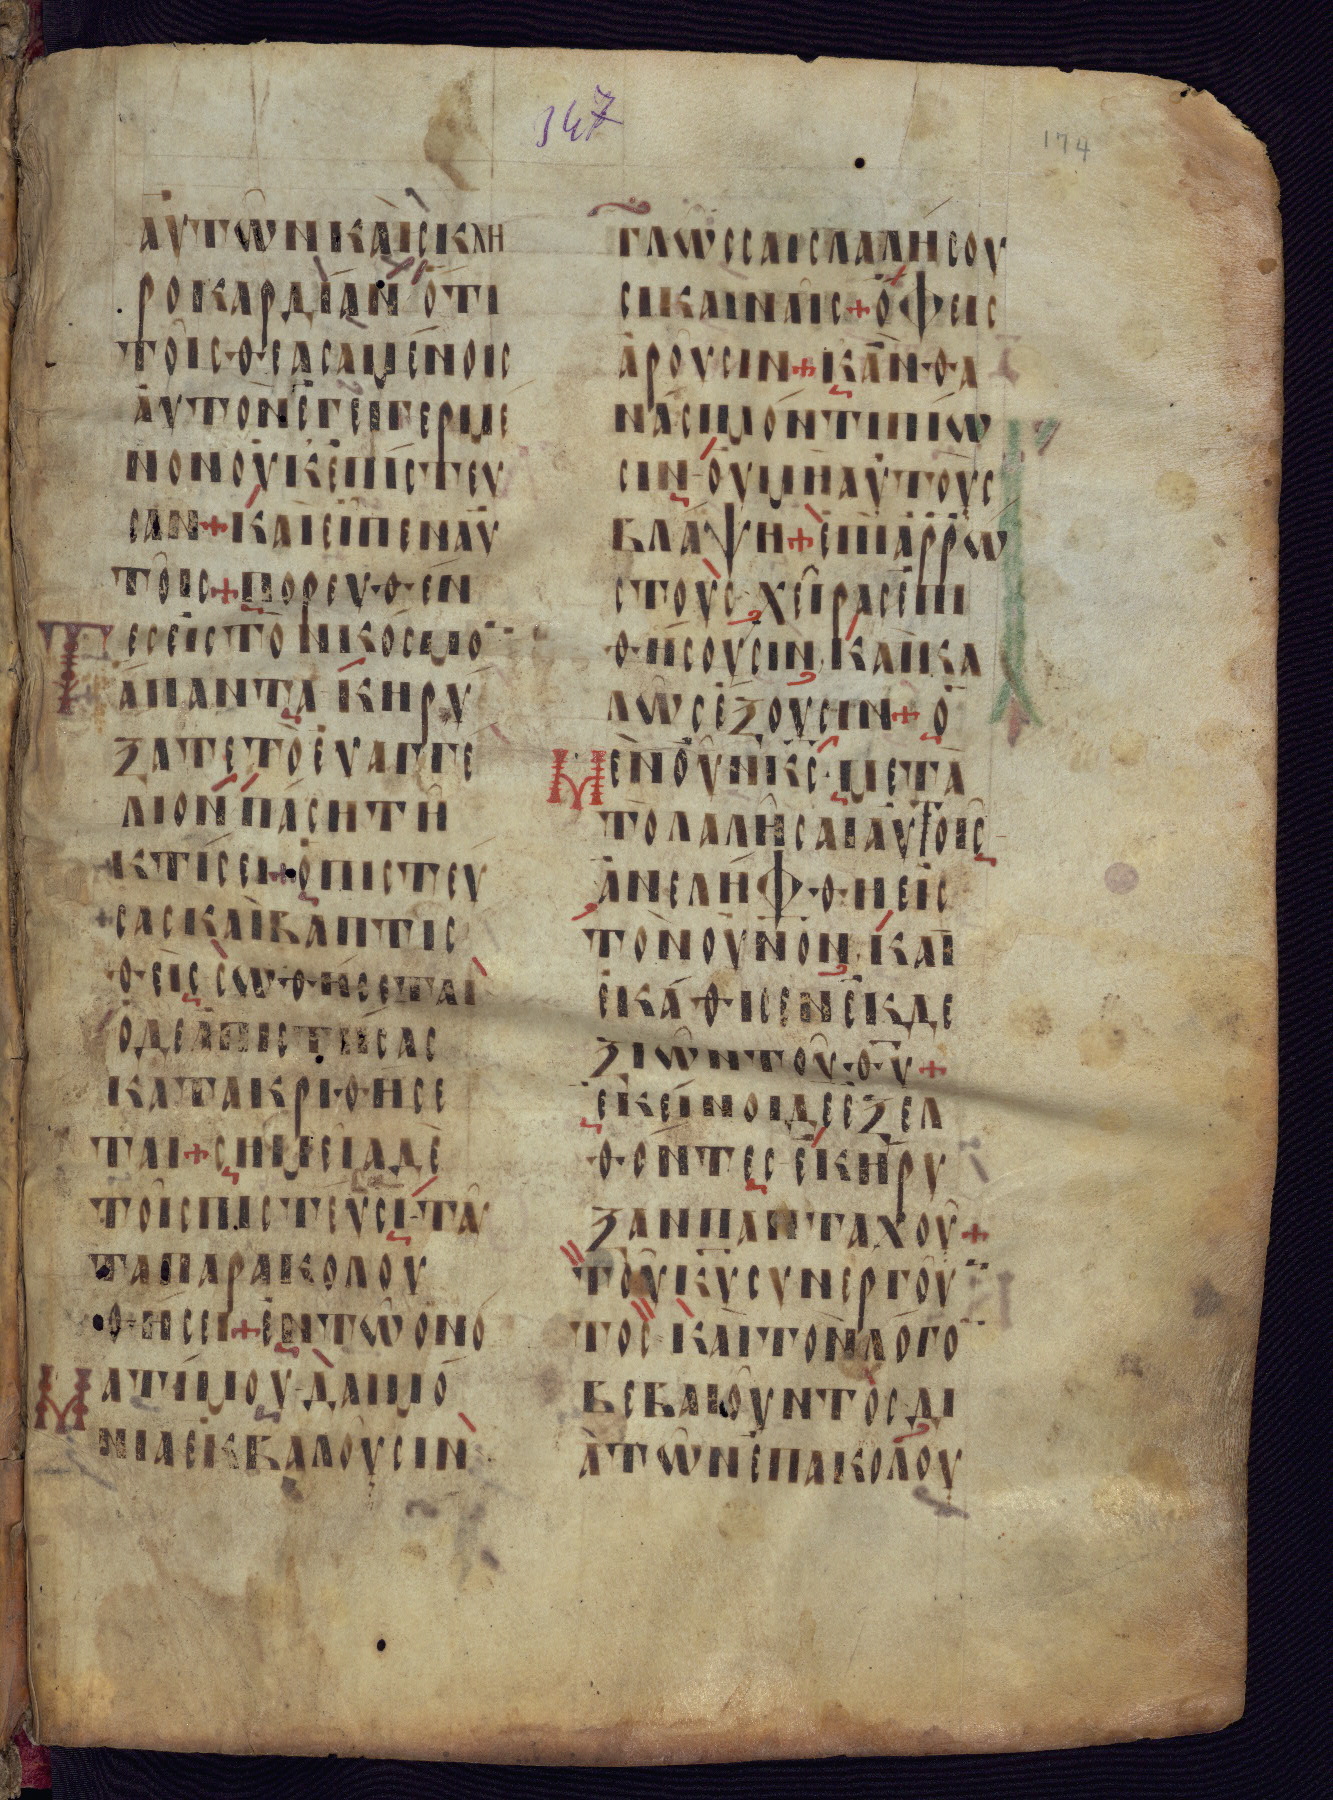 347
174
ΑΥΤΩΝ ΚΑΙ ΣΚΛΗ
ΡΟΚΑΡΔΙΑΝ ΟΤΙ
ΤΟΙΣ ΘΕΑΣΑΜΕΝΟΙΣ
ΑΥΤΟΝ ΕΓΕΙΓΕΡΜΕ
ΝΟΝ ΟΥΚ ΕΠΙΣΤΕΥ
ΣΑΝ + ΚΑΙ ΕΙΠΕΝ ΑΥ
ΤΟΙΣ + ΠΟΡΕΥΘΕΝ
ΤΕΣ ΕΙΣ ΤΟΝ ΚΟΣΜΟ
ΑΠΑΝΤΑ ΚΗΡΥ
ΞΑΤΕ ΤΟ ΕΥΑΓΓΕ
ΛΙΟΝ ΠΑΣΗ ΤΗ
ΚΤΙΣΕΙ + Ο ΠΙΣΤΕΥ
ΣΑΣ ΚΑΙ ΒΑΠΤΙΣ
ΘΕΙΣ ΣΩΘΗΣΕΤΑΙ
Ο ΔΕ ΑΠΙΣΤΗΣΑΣ
ΚΑΤΑΚΡΙΘΗΣΕ
ΤΑΙ + ΣΗΜΕΙΑ ΔΕ
ΤΟΙΣ ΠΙΣΤΕΥΣΙ ΤΑΥ
ΤΑ ΠΑΡΑΚΟΛΟΥ
ΘΗΣΕΙ + ΕΝ ΤΩ ΟΝΟ
ΜΑΤΙ ΜΟΥ ΔΑΙΜΟ
ΝΙΑ ΕΚΒΑΛΟΥΣΙΝ
ΓΛΩΣΣΑΙΣ ΛΑΛΗΣΟΥ
ΣΙ ΚΑΙΝΑΙΣ + ΟΦΕΙΣ
ΑΡΟΥΣΙΝ + ΚΑΝ ΘΑ
ΝΑΣΙΜΟΝ ΤΙ ΠΙΩ
ΣΙΝ ΟΥ ΜΗ ΑΥΤΟΥΣ
ΒΛΑΨΗ + ΕΠΙ ΑΡΡΩ
ΣΤΟΥΣ ΧΕΙΡΑΣ ΕΠΙ
ΘΗΣΟΥΣΙΝ ΚΑΙ ΚΑ
ΛΩΣ ΕΞΟΥΣΙΝ + Ο
ΜΕΝ ΟΥΝ ΚΣ ΜΕΤΑ
ΤΟ ΛΑΛΗΣΑΙ ΑΥΤΟΙΣ
ΑΝΕΛΗΦΘΗ ΕΙΣ
ΤΟΝ ΟΥΝΟΝ ΚΑΙ
ΕΚΑΘΙΣΕΝ ΕΚ ΔΕ
ΞΙΩΝ ΤΟΥ ΘΥ +
ΕΚΕΙΝΟΙ ΔΕ ΕΞΕΛ
ΘΟΝΤΕΣ ΕΚΗΡΥ
ΞΑΝ ΠΑΝΤΑΧΟΥ +
ΤΟΥ ΚΥ ΣΥΝΕΡΓΟΥ
ΤΟΣ ΚΑΙ ΤΟΝ ΛΟΓΟ
ΒΕΒΑΙΟΥΝΤΟΣ ΔΙ
Α ΤΩΝ ΕΠΑΚΟΛΟΥ